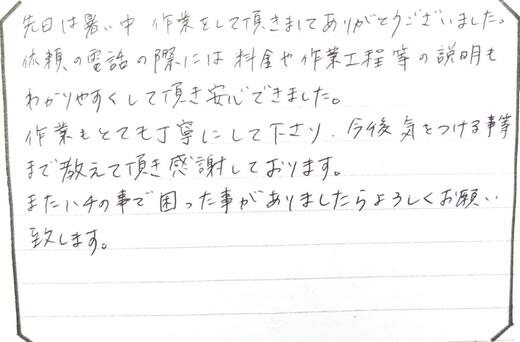 先日は暑い中 作業をして頂きましてありがとうございました。
依頼の電話の際には料金や作業工程等の説明も
わかりやすくして頂き安心できました。
作業もとても丁寧にして下さり、今後気をつける事等
まで教えて頂き感謝しております。
またハチの事で困った事がありましたらよろしくお願い
致します。